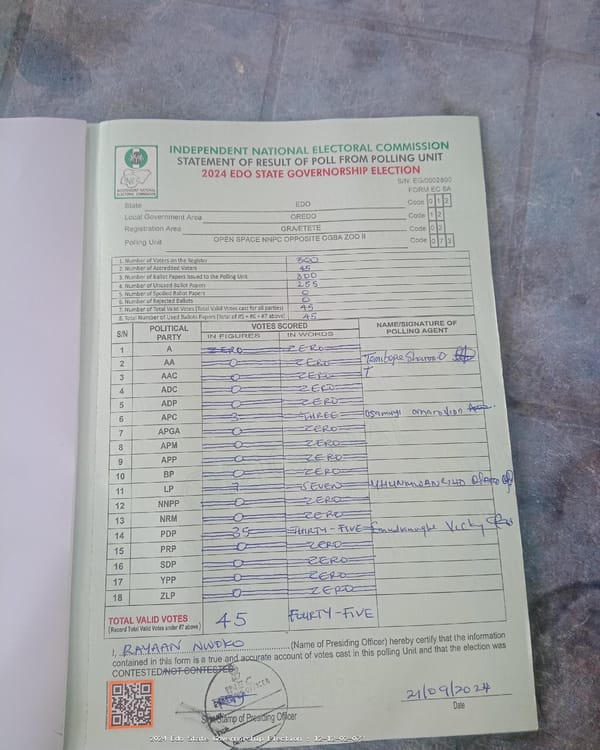 INDEPENDENT NATIONAL ELECTORAL COMMISSION
STATEMENT OF RESULT OF POLL FROM POLLING UNIT
2024 EDO STATE GOVERNORSHIP ELECTION
INDEPENDENT NATIONAL ELECTORAL COMMISSION
S/N: EG/0002800
FORM EC 8A
State EDO Code 0 1 2
Local Government Area OREDO Code 1 2
Registration Area GRA/ETETE Code 0 2
Polling Unit OPEN SPACE NNPC OPPOSITE OGBA ZOO II Code 0 7 3
1. Number of Voters on the Register 300
2. Number of Accredited Voters 45
3. Number of Ballot Papers Issued to the Polling Unit 300
4. Number of Unused Ballot Papers 255
5. Number of Spoiled Ballot Papers 0
6. Number of Rejected Ballots 0
7. Number of Total Valid Votes (Total Valid Votes cast for all parties) 45
8. Total Number of Used Ballots Papers (Total of #5 + #6 + #7 above) 45
S/N POLITICAL PARTY VOTES SCORED NAME/SIGNATURE OF POLLING AGENT
IN FIGURES IN WORDS
1 A ZERO ZERO
2 AA 0 ZERO
3 AAC 0 ZERO
4 ADC 0 ZERO
5 ADP 0 ZERO
6 APC 3 THREE
7 APGA 0 ZERO
8 APM 0 ZERO
9 APP 0 ZERO
10 BP 0 ZERO
11 LP 7 SEVEN
12 NNPP 0 ZERO
13 NRM 0 ZERO
14 PDP 35 THIRTY-FIVE Vicky
15 PRP 0 ZERO
16 SDP 0 ZERO
17 YPP 0 ZERO
18 ZLP 0 ZERO
TOTAL VALID VOTES 45 FOURTY-FIVE
(Record Total Valid Votes under #7 above)
I, RAYAAN NWOKO (Name of Presiding Officer) hereby certify that the information
contained in this form is a true and accurate account of votes cast in this polling Unit and that the election was
CONTESTED/NOT CONTESTED
21/09/2024
Sign/Stamp of Presiding Officer Date
2024 Edo State Governorship Election - 12-12-02-073